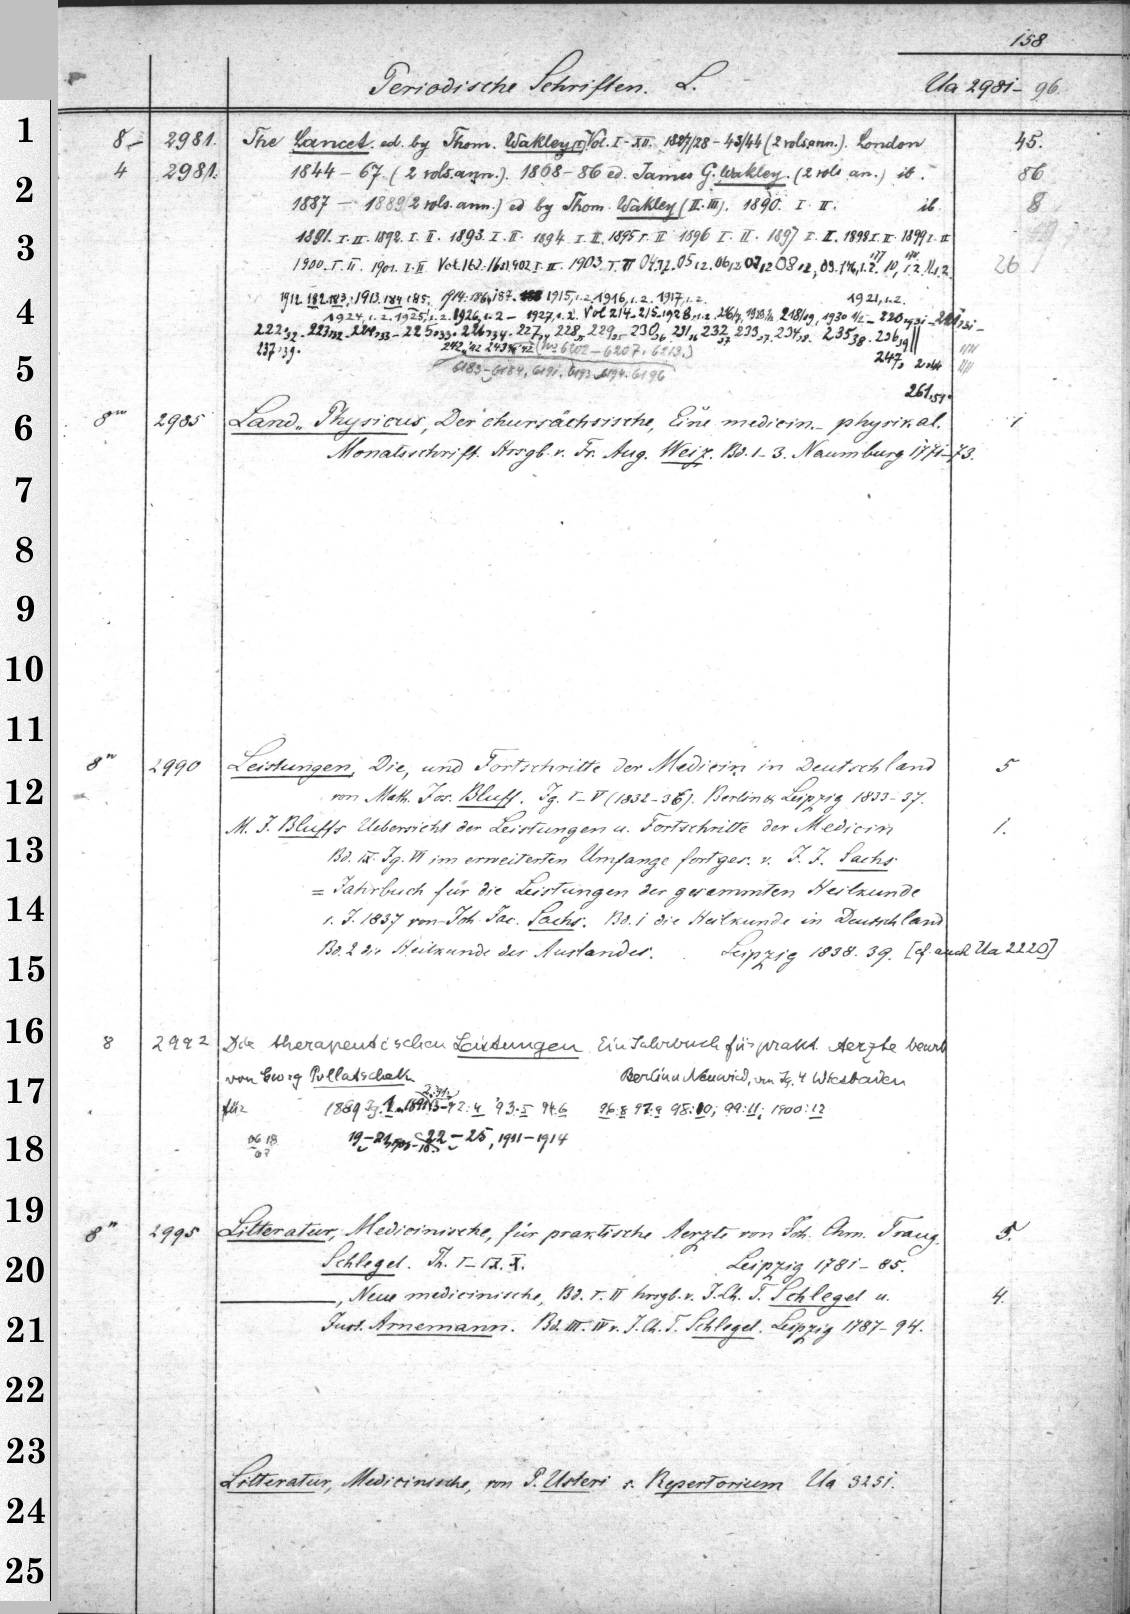 158
Periodische Schriften. L. Ua 2981-96.
1
8- 2981. The Lancet. ed. by Thom. Wakley(I) Vol. I-XII. 1827/28-43/44 (2 vols. ann.). London 45.
4 2981. 1844-67. (2 vols. ann.). 1868-86 ed. James G. Wakley. (2 vols an.) ib. 86
2
1887-1889 (2 vols. ann.) ed by Thom. Wakley (II. III). 1890. I. II. ib. 8
3
1891. I. II. 1892. I. II. 1893. I. II. 1894. I. II. 1895 I. II 1896 I. II. 1897 I. II. 1898 I. II. 1899 I. II
1900. I. II. 1901. I. II Vol. 162. 1902 I. II. 1903. I. II 26
4
1912. 182. 183, 1913. 184 185. 1914. 186, 187. 1915, 1.2. 1916, 1.2. 1917, 1.2. 1921, 1.2.
1924, 1.2. 1925, 1.2. 1926, 1.2 - 1927, 1.2. Vol 214-215-1928, 1.2.
237,39. 242,42 (No 6202-6207, 6213.) 247,
5
6183-6184, 6191, 6193. 6194. 6196
261,51.
6
8° 2985 Land-Physicus, Der chursächsische, Eine medicin.- physikal. 1
Monatsschrift. Hrsgb. v. Fr. Aug. Weiz. Bd. 1-3. Naumburg 1771-73.
7
8
9
10
11
8° 2990 Leistungen, Die, und Fortschritte der Medicin in Deutschland 5
12
von Math. Jos. Bluff. Jg. I-V (1832-36). Berlin & Leipzig 1833-37.
M. J. Bluffs Uebersicht der Leistungen u. Fortschritte der Medicin 1.
13
Bd. IX. Jg. VI im erweiterten Umfange fortges. v. J. J. Sachs
= Jahrbuch für die Leistungen der gesammten Heilkunde
14
s. J. 1837 von Joh. Jac. Sachs. Bd. 1 die Heilkunde in Deutschland
Bd. 2 die Heilkunde des Auslandes. Leipzig 1838. 39. [cf auch Ua 2220]
15
16
8 2992 Die therapeutischen Leistungen Ein Jahrbuch für prakt. Aerzte bearb
von Georg Pollatschek Berlin u Neuwied, von Jg. 4 Wiesbaden
17
für 1889 Jg. 1 92: 4 '93: 5 94: 6 96: 8 97: 9 98: 10; 99: 11; 1900: 12
18
06 18
07
19-21 22-25, 1911-1914
19
8° 2995 Litteratur, Medicinische, für praktische Aerzte von Joh. Chrn. Traug. 5.
20
Schlegel. Th. I-IX. X. Leipzig 1781-85.
, Neue medicinische, Bd. I. II hrsgb. v. J. Ch. T. Schlegel u. 4.
21
Just. Arnemann. Bd. III. IV v. J. Ch. T. Schlegel. Leipzig 1787-94.
22
23
Litteratur, Medicinische, von P. Usteri s. Repertorium Ua 3251.
24
25